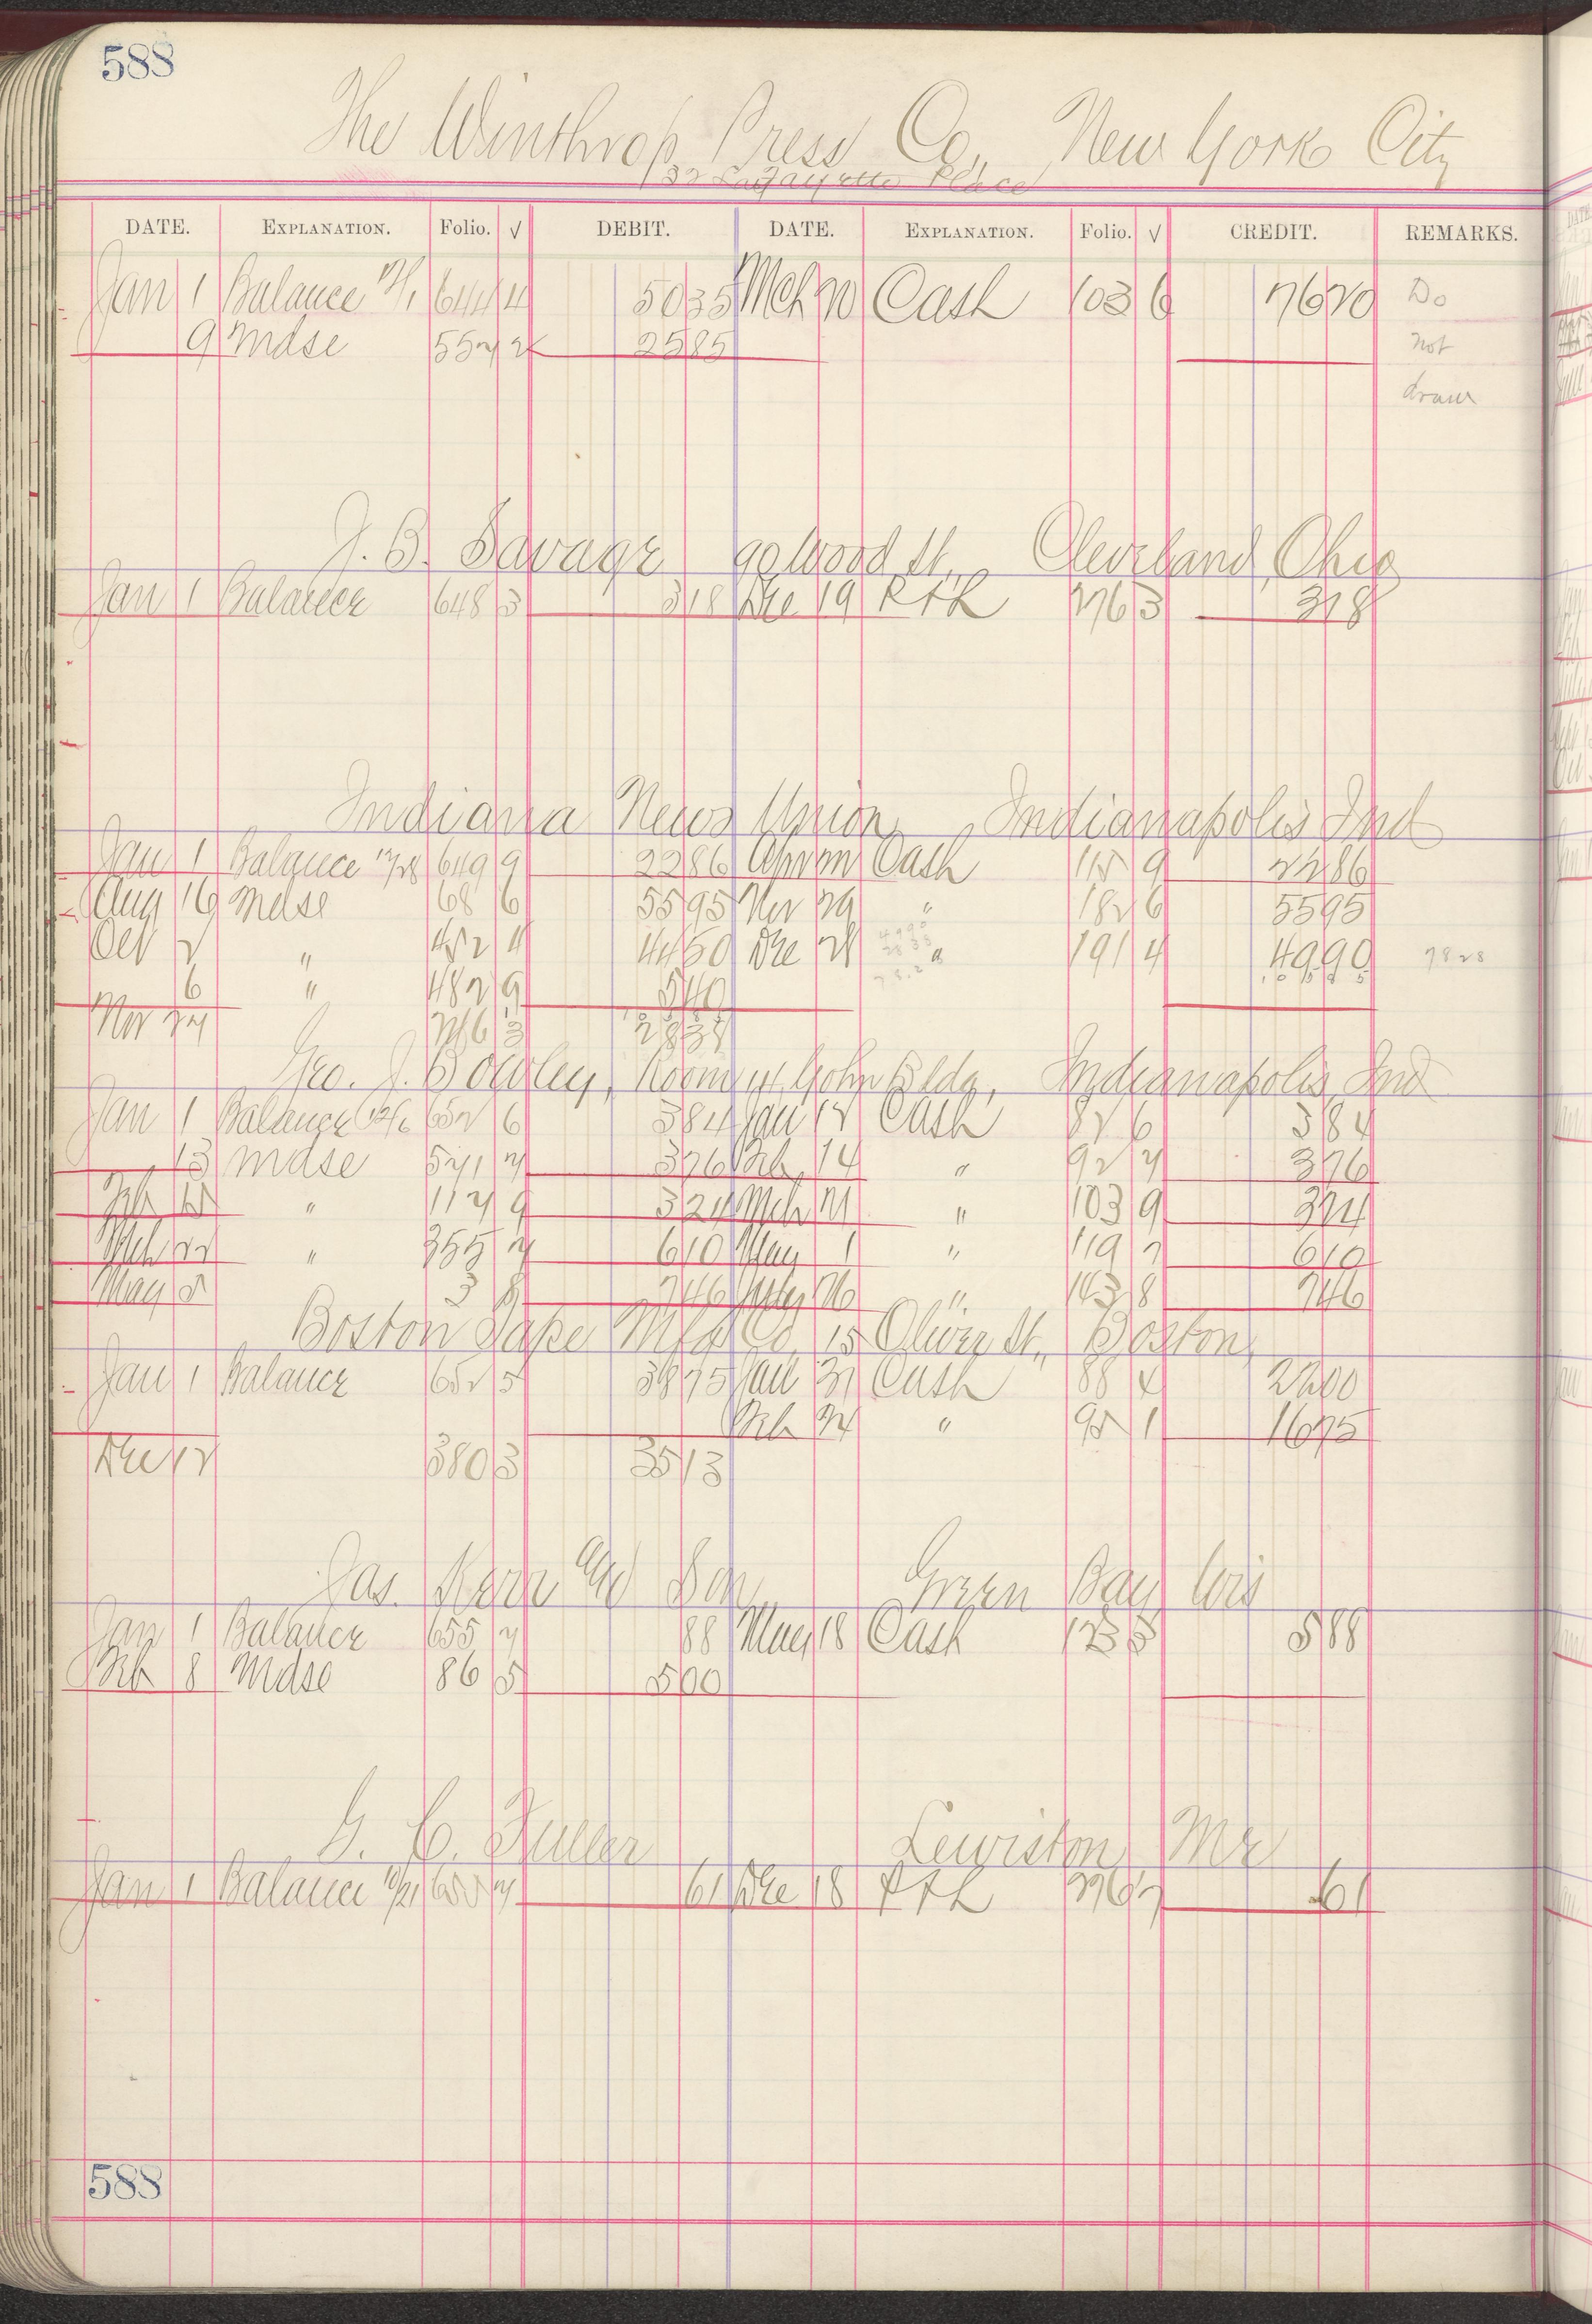 588
The Winthrop Press Co., New York City
32 Lafayette Place
DATE. EXPLANATION. Folio. √ DEBIT. DATE. EXPLANATION. Folio. √ CREDIT. REMARKS.
Jan 1 Balance 644 4 5035 Mch 20 Cash 103 6 7620 Do
9 Mdse 552 2 2585 not
draw
J. B. Savage 90 Wood St., Cleveland, Ohio
Jan 1 Balance 648 3 318 Dec 19 276 3 318
Indiana News Union, Indianapolis Ind
Jan 1 Balance 12/28 649 9 2286 Cash 9 2286
Aug 19 Mdse 68 6 5595 Nov 29 " 182 6 5595
Oct 2 " 452 4 4450 Dec 28 " 191 4 4990 7828
6 " 482 9 540
Nov 24 3 2838
Geo. J. Room Bldg, Indianapolis, Ind
Jan 1 Balance 652 6 384 Jan 17 Cash 82 6 384
13 Mdse 571 2 376 Feb 14 " 92 2 376
Feb 15 " 112 9 324 Mch 21 " 103 9 324
Mch 22 " 355 2 610 May 1 " 119 2 610
May 5 3 8 746 " 143 8 746
Boston Tape Mfg Co, 15 Oliver St., Boston,
Jan 1 Balance 652 5 3875 Jan 31 Cash 88 4 2200
Feb 24 " 95 1 1675
Dec 12 380 3 3513
Jas. Kerr and Son Green Bay Wis
Jan 1 Balance 655 2 88 May 18 Cash 125 5 588
Feb 8 Mdse 86 5 500
G. C. Fuller Lewiston Me
Jan 1 Balance 655 2 61 Dec 18 276 2 61
588